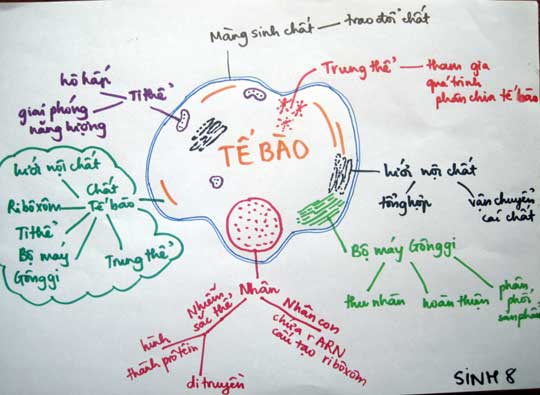 Màng sinh chất
trao đổi chất
Trung thể
tham gia
quá trình
phân chia tế bào
hô hấp
Ti thể
giải phóng
năng lượng
TẾ BÀO
lưới nội chất
Ribôxôm
Chất
Tế bào
Ti thể
Bộ máy
Gônggi
Trung thể
lưới nội chất
tổng hợp
vân chuyển
các chất
Bộ máy Gônggi
thu nhân
hoàn thiện
phân
phối
sản phẩm
Nhân
Nhiễm
sắc thể
hình
thành prôtêin
di truyền
Nhân con
chứa rARN
cấu tạo ribôxôm
SINH 8